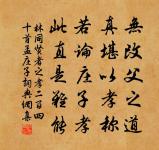 無改父之道
真堪以孝稱
若論庄子孝
此直是難能
林同賢者之孝二百四
十首孟庄子詞典網集